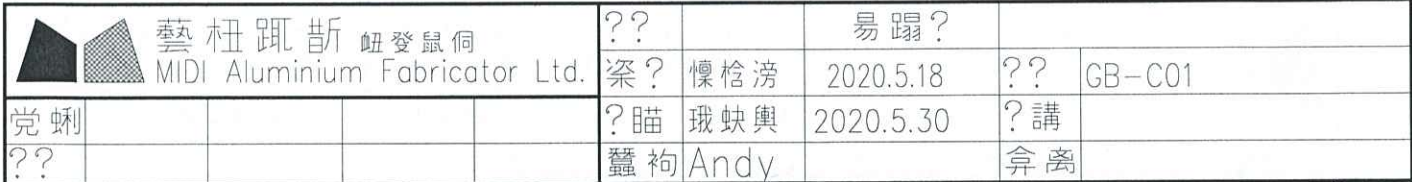 藝杻踂歽 衄癹鼠侗
MIDI Aluminium Fabricator Ltd.
?? 昜蹋?
栥? 懍桰滂 2020.5.18 ?? GB-C01
党蜊 ?瞄 珴蚗輿 2020.5.30 ?講
?? 蠶袧 Andy 弇离